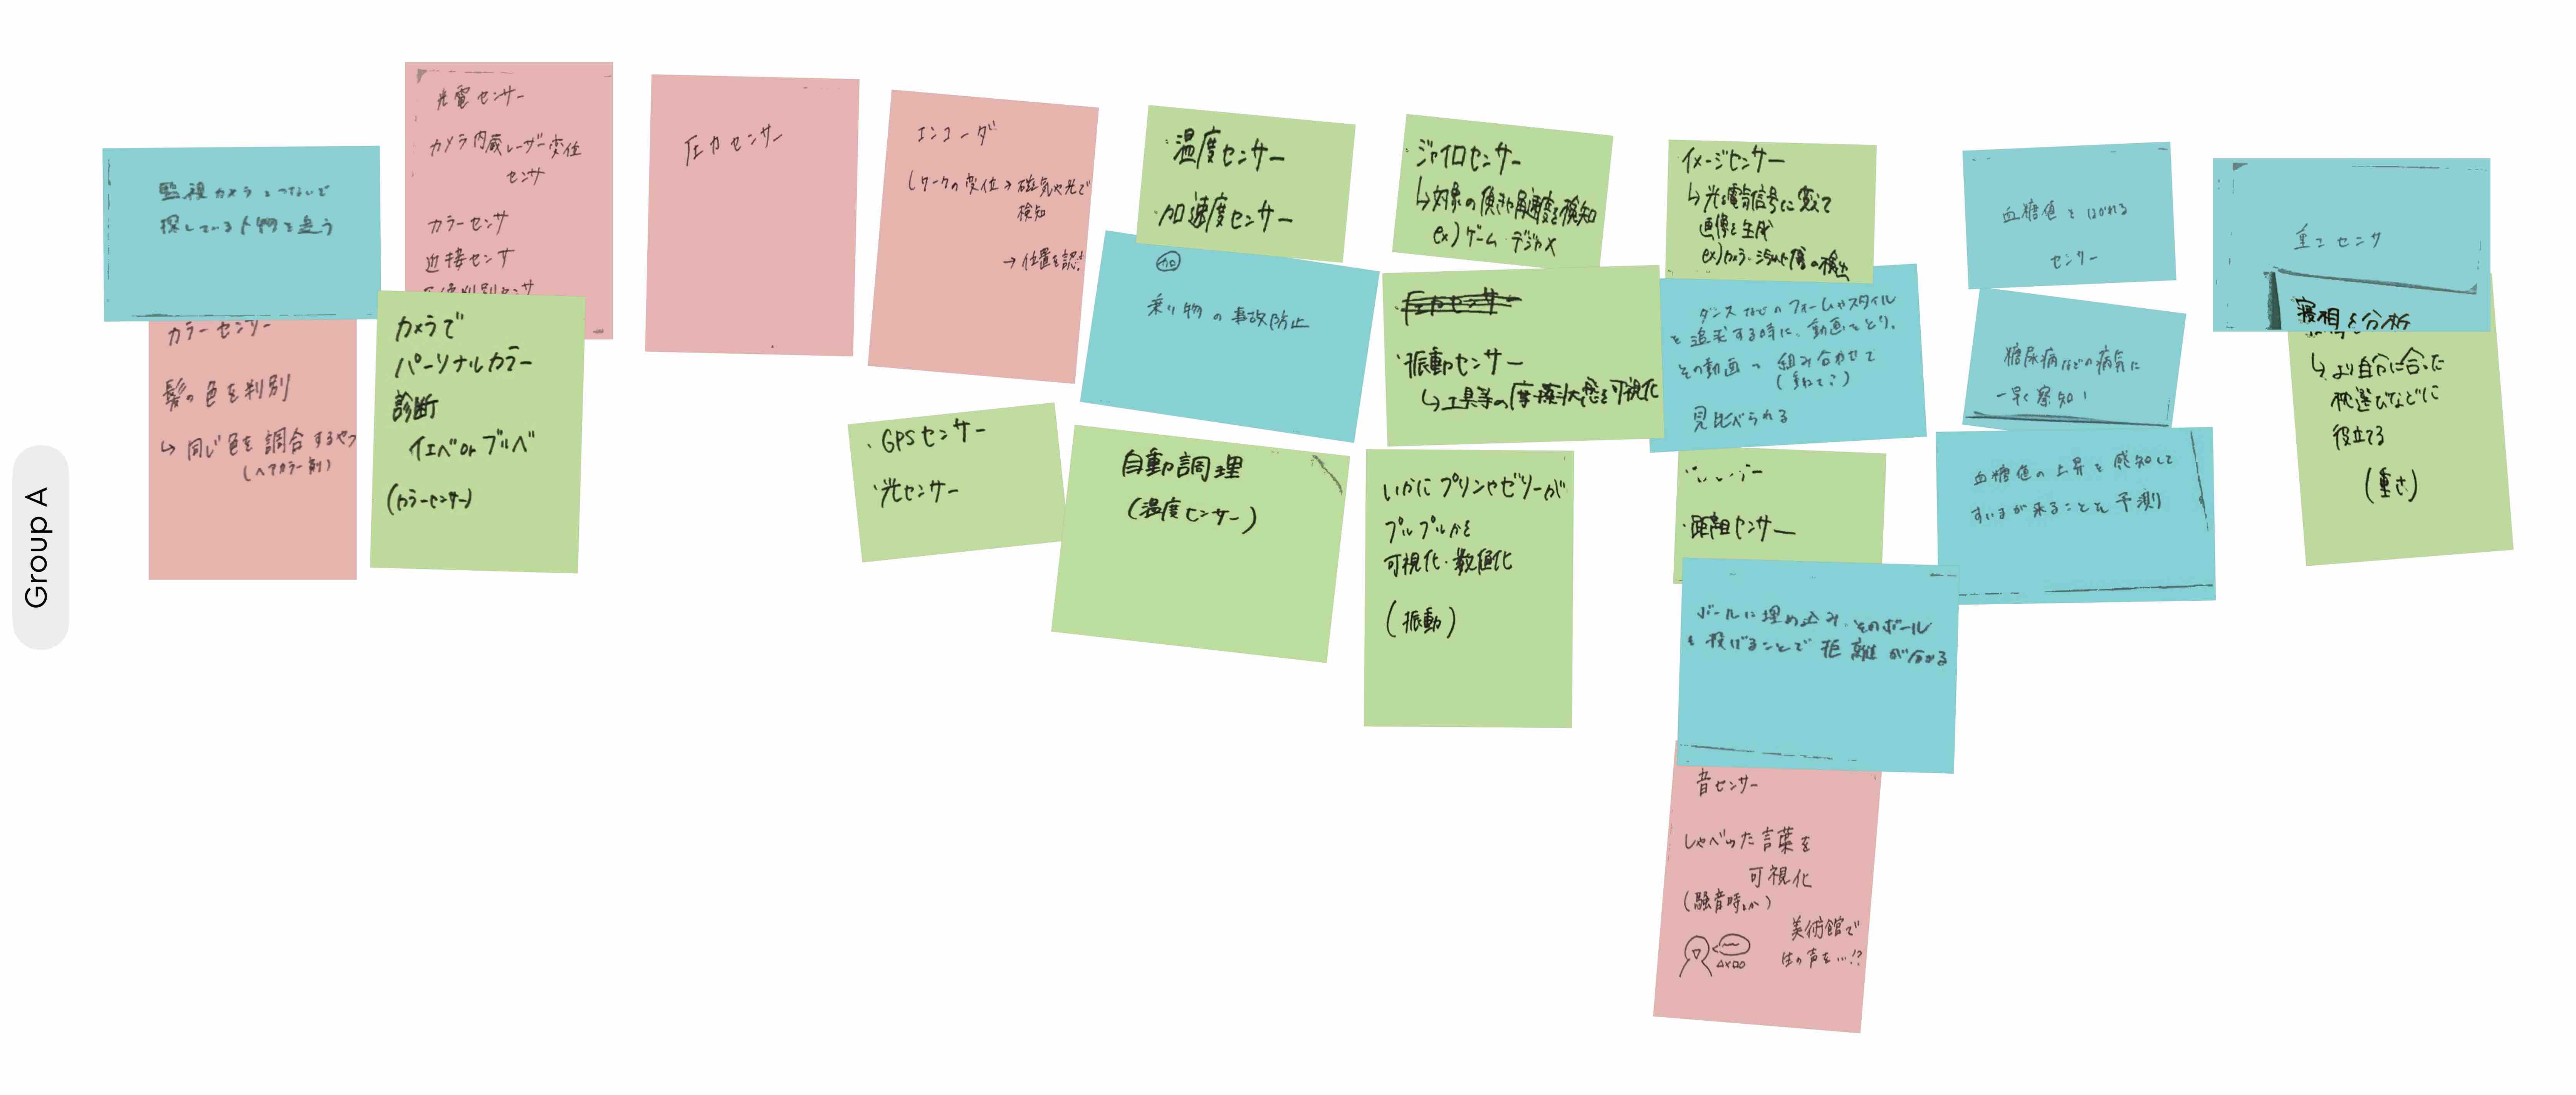 Group A
監視カメラとつないで
探している人物を追う
カラーセンサー
髪の色を判別
↳ 同じ色を調合するやつ
(ヘアカラー剤)
光電センサー
カメラ内蔵レーザー変位
センサ
カラーセンサ
近接センサ
カメラで
パーソナルカラー
診断
イエベorブルベ
(カラーセンサー)
圧力センサー
エンコーダ
↳ワークの変位→磁気や光で
検知
→位置を認
・GPSセンサー
・光センサー
・温度センサー
・加速度センサー
加
乗り物の事故防止
自動調理
(温度センサー)
・ジャイロセンサー
↳対象の傾きや角速度を検知
ex)ゲーム・デジカメ
・振動センサー
↳工具等の摩擦状態を可視化
いかにプリンやゼリーが
プルプルかを
可視化・数値化
(振動)
イメージセンサー
↳光を電気信号に変えて
画像を生成
ex)カメラ・汚れや傷の検出
ダンスなどのフォームやスタイル
を追求する時に、動画をとり、
その動画を組み合わせて
(重ねて?)
見比べられる
・距離センサー
ボールに埋め込み、そのボール
を投げることで距離が分かる
音センサー
しゃべった言葉を
可視化
(騒音時とか)
美術館で
生の声を…!?
血糖値をはかれる
センサー
糖尿病などの病気に
一早く察知!
血糖値の上昇を感知して
すいまが来ることを予測
重さセンサ
寝相を分析
↳より自分に合った
枕選びなどに
役立てる
(重さ)